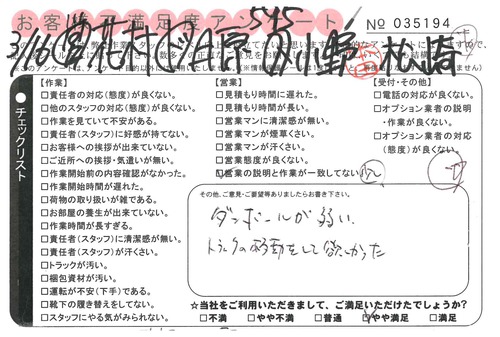 お客様満足度アンケート
545
No 035194
3/16
小野
松橋
チェックリスト
【作業】
□責任者の対応(態度)が良くない。
□他のスタッフの対応(態度)が良くない。
□作業を見ていて不安がある。
□責任者(スタッフ)に好感が持てない。
□お客様への挨拶が出来ていない。
□ご近所への挨拶・気遣いが無い。
□作業開始前の内容確認がなかった。
□作業開始時間が遅れた。
□荷物の取り扱いが雑である。
□お部屋の養生が出来ていない。
□作業時間が長すぎる。
□責任者(スタッフ)に清潔感が無い。
□責任者(スタッフ)が汗くさい。
□トラックが汚い。
□梱包資材が汚い。
□運転が不安(下手)である。
□靴下の履き替えをしてない。
□スタッフにやる気がみられない。
【営業】
□見積もり時間に遅れた。
□見積もり時間が長い。
□営業マンに清潔感が無い。
□営業マンが煙草くさい。
□営業マンが汗くさい。
□営業態度が良くない。
□営業の説明と作業が一致してない
【受付・その他】
□電話の対応が良くない。
□オプション業者の説明
・作業が良くない。
□オプション業者の対応
(態度)が良くない。
その他、ご意見・ご要望等ありましたらお書き下さい。
ダンボールが弱い、
トラックの移動をして欲しかった
☆当社をご利用いただきまして、ご満足いただけたでしょうか?
□不満 □やや不満 □普通 □やや満足 □満足